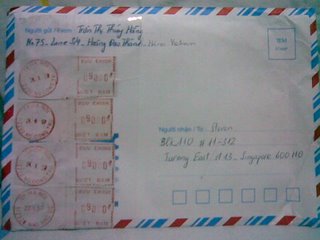 Người gửi / From: Trần Thị Thúy Hằng
No 75 - Lane 314 - Hoàng Văn Thái - Hanoi Vietnam
TEM
BƯU CHÍNH
0900đ
VIỆT NAM
BƯU CHÍNH
0900đ
VIỆT NAM
BƯU CHÍNH
0900đ
VIỆT NAM
BƯU CHÍNH
0900đ
VIỆT NAM
Người nhận / To: Steven
Blk 110 # 11-312
Jurong East st 13 - Singapore 600110